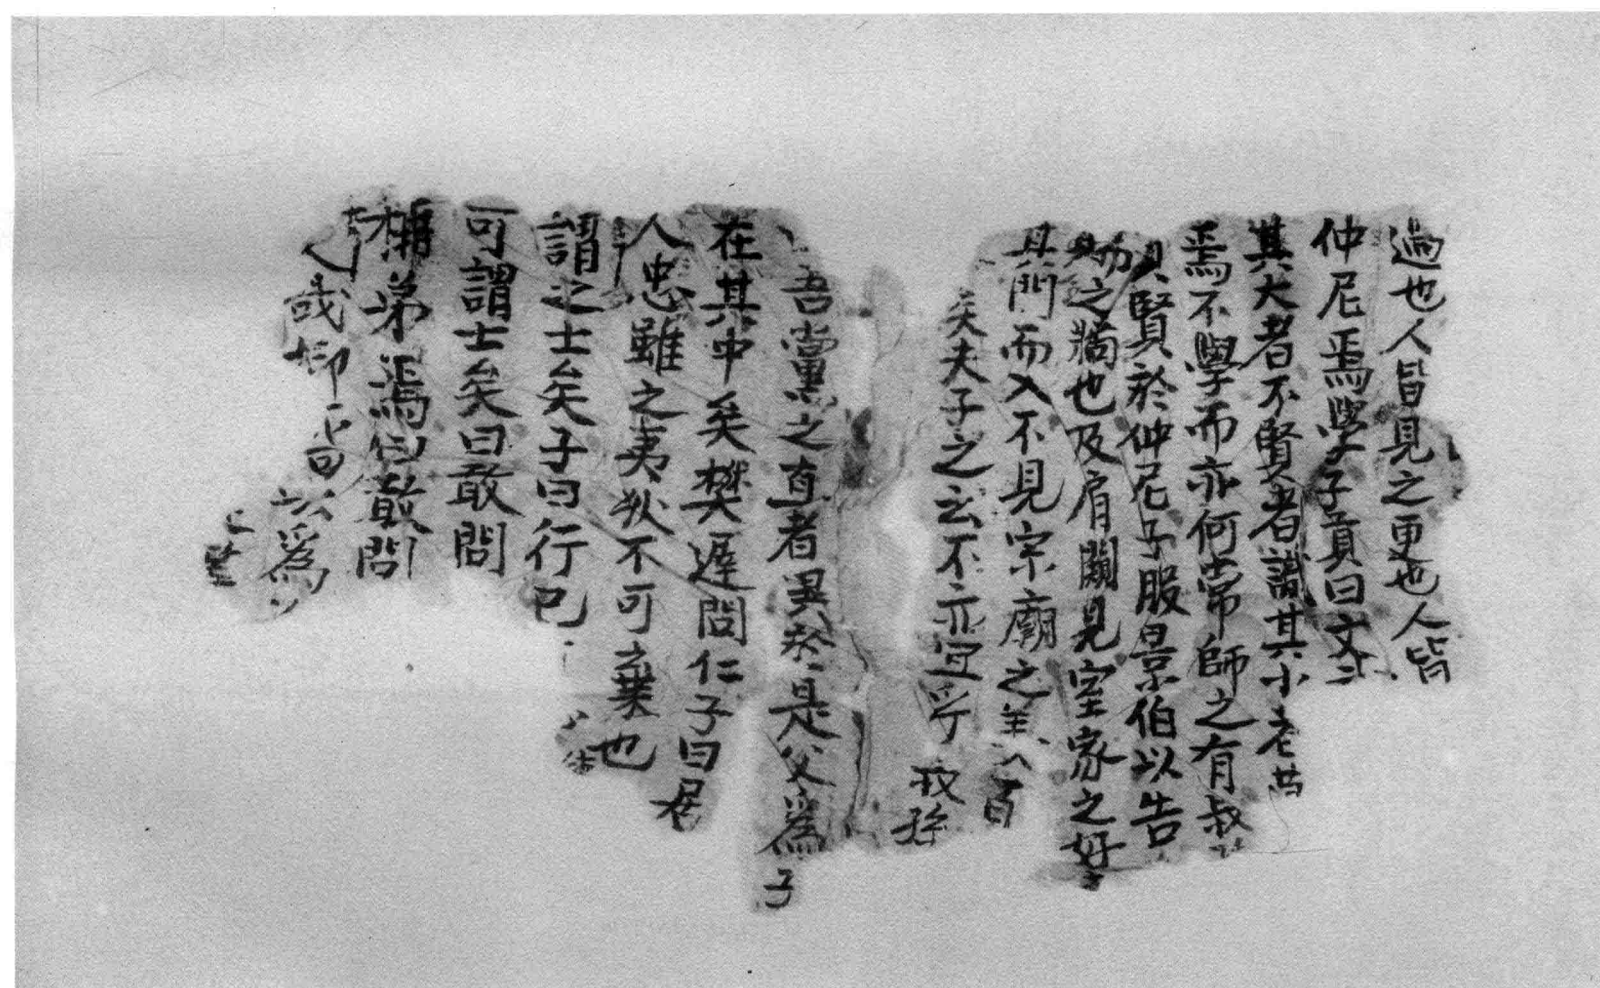 過也人皆見之更也人皆
仲尼焉學子貢曰文
其大者不賢者識其小者
焉不學而亦何常師之有叔
賢於仲尼子服景伯以告
賜之牆也及肩闚見室家之好
其門而入不見宗廟之美百
矣夫子之云不亦宜乎 叔孫
吾黨之直者異於是父爲子
在其中矣樊遲問仁子曰居
人忠雖之夷狄不可棄也
謂之士矣子曰行己
可謂士矣曰敢問
稱弟焉曰敢問
哉抑 以爲